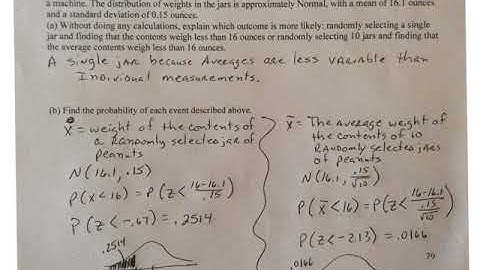 a machine. The distribution of weights in the jars is approximately Normal, with a mean of 16.1 ounces
and a standard deviation of 0.15 ounces.
(a) Without doing any calculations, explain which outcome is more likely: randomly selecting a single
jar and finding that the contents weigh less than 16 ounces or randomly selecting 10 jars and finding that
the average contents weigh less than 16 ounces.
A single jar because Averages are less variable than
Indiviual measurements.
(b) Find the probability of each event described above.
X = weight of the contents of
a randomly selected jar of
peanuts
N(16.1, .15)
P(X<16) = P(Z< 16-16.1 / .15)
P(Z<-.67) = .2514
.2514
x̄ = The average weight of
the contents of 10
randomly selected jars
of peanuts
N(16.1, .15/√10)
P(x̄<16) = P(Z< 16-16.1 / .15/√10)
P(Z<-2.13) = .0166
.0166
79